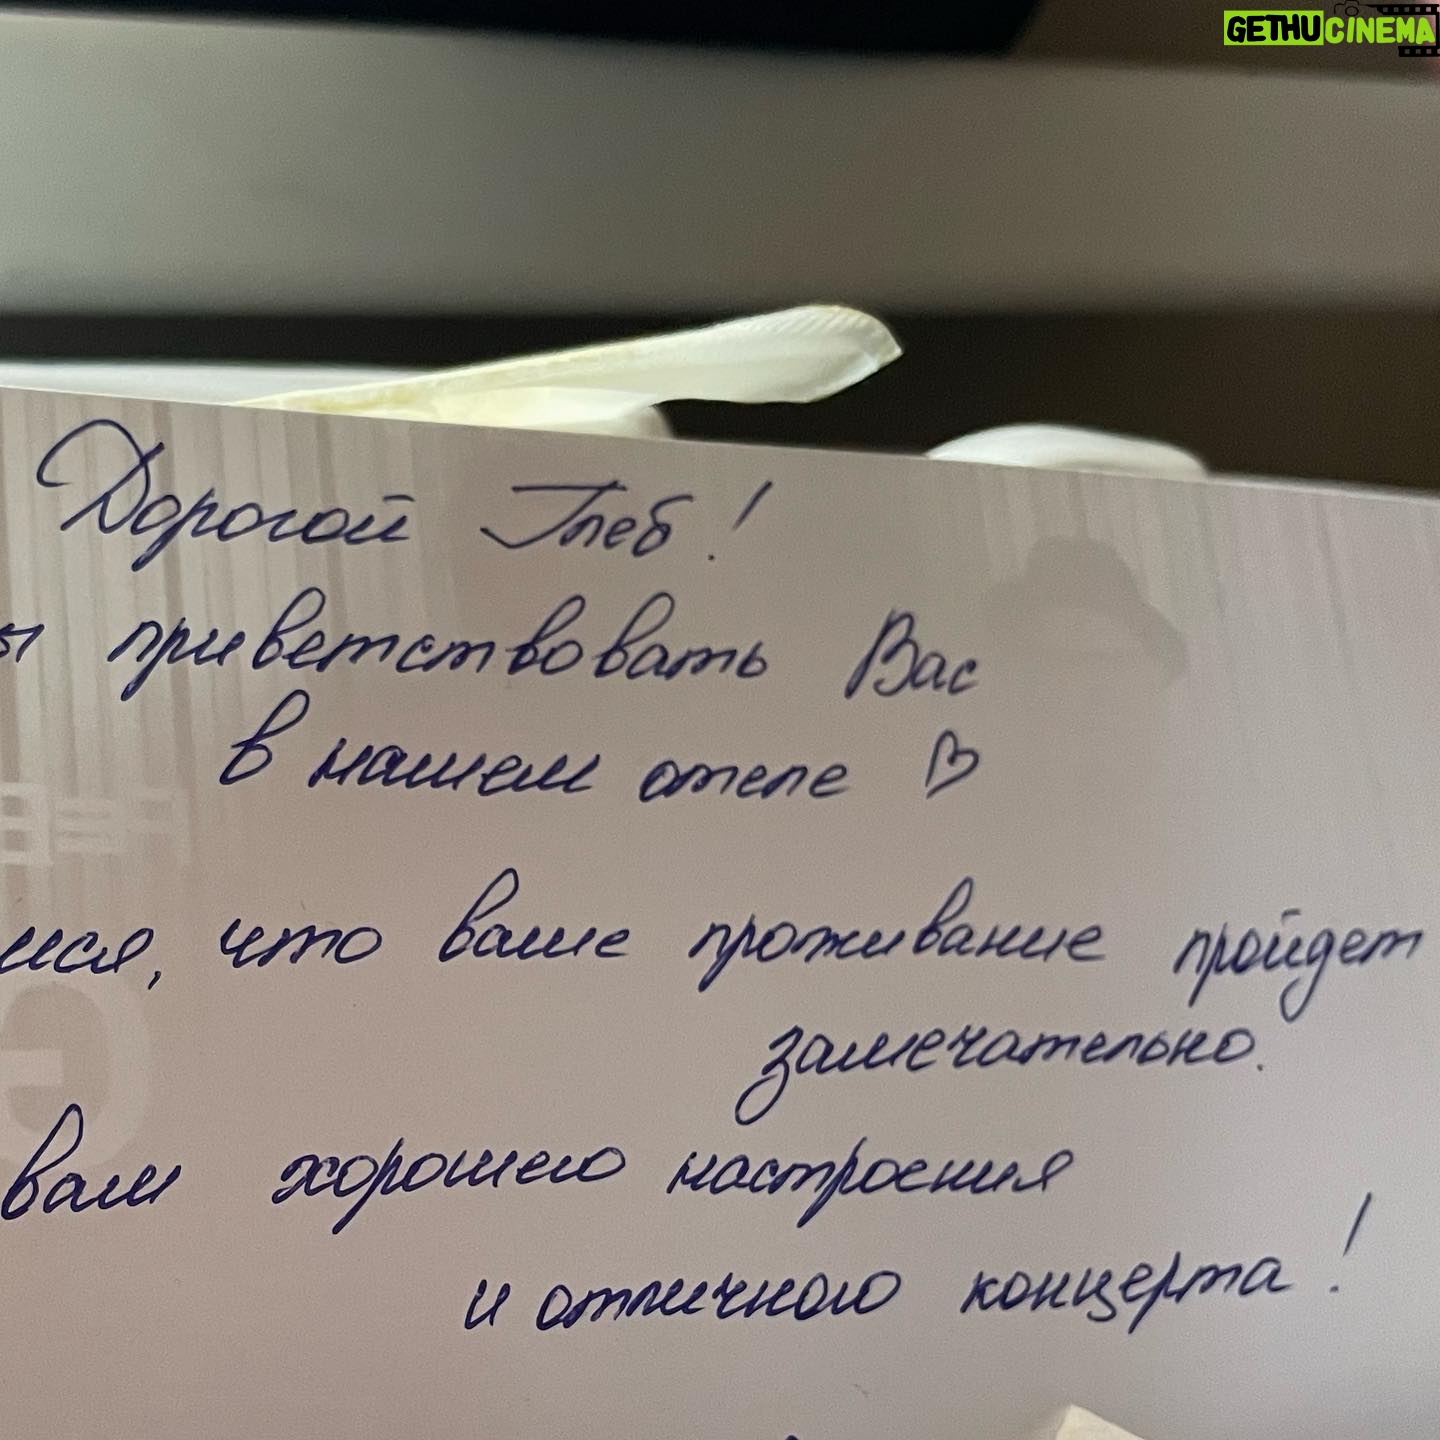 GETHUCINEMA
Дорогой Глеб!
ы приветствовать Вас
в нашем отеле ♡
мся, что ваше проживание пройдет
замечательно.
вам хорошего настроения
и отличного концерта!